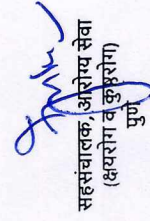 सहसंचालक, आरोग्य सेवा
(क्षयरोग व कुष्ठरोग)
पुणे